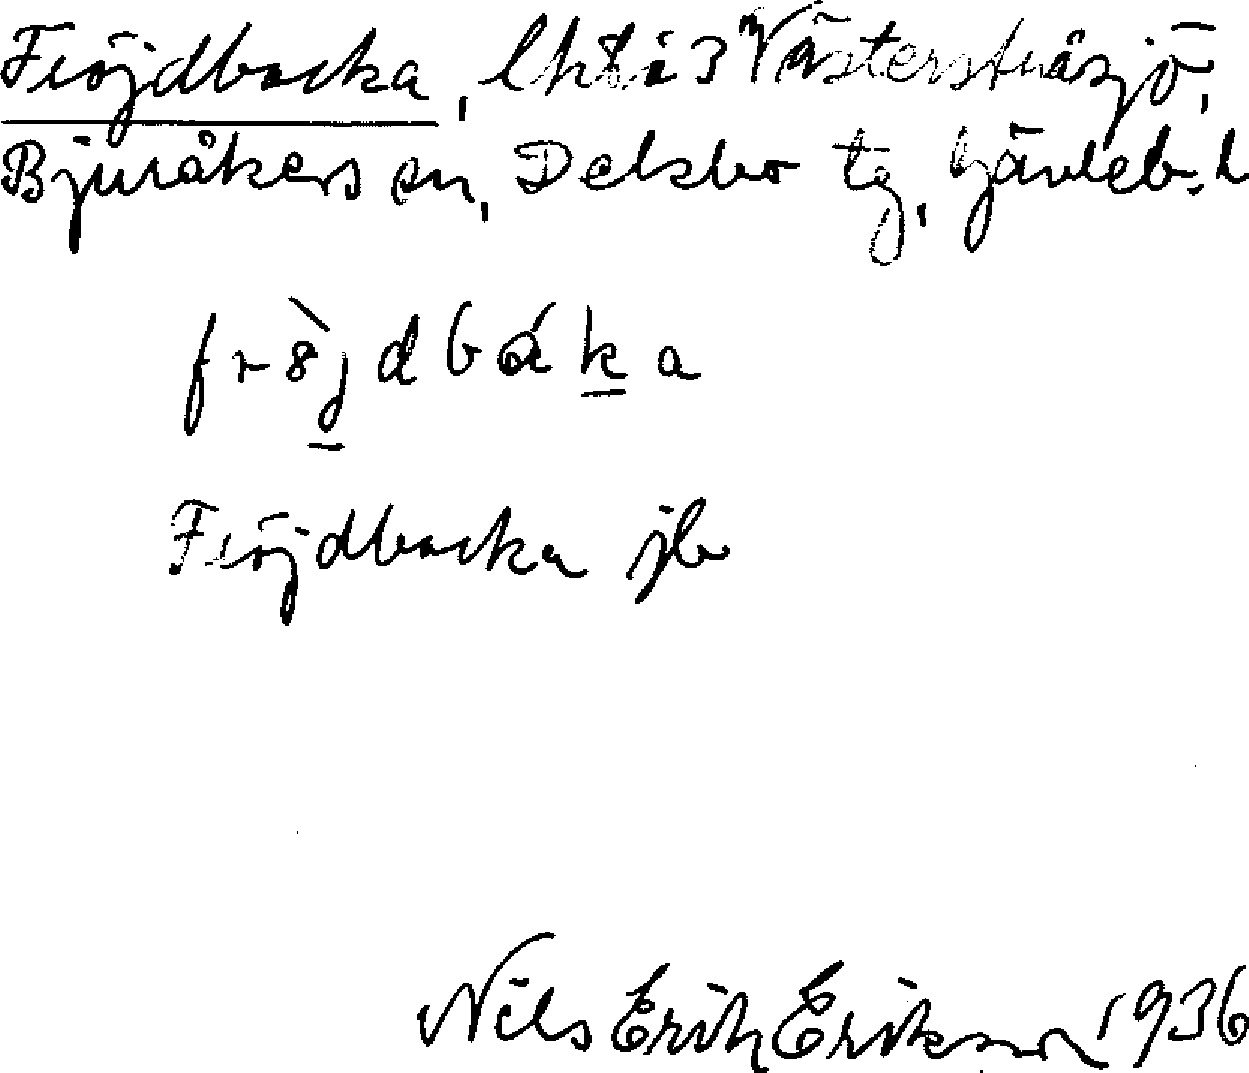 Fröjdbacka, lht i 3 Västerstråsjö,
Bjuråkers sn, Delsbo tg, Gävleb. l
frö̀jdbáka
Fröjdbacka jb
Nils Erik Erikson 1936